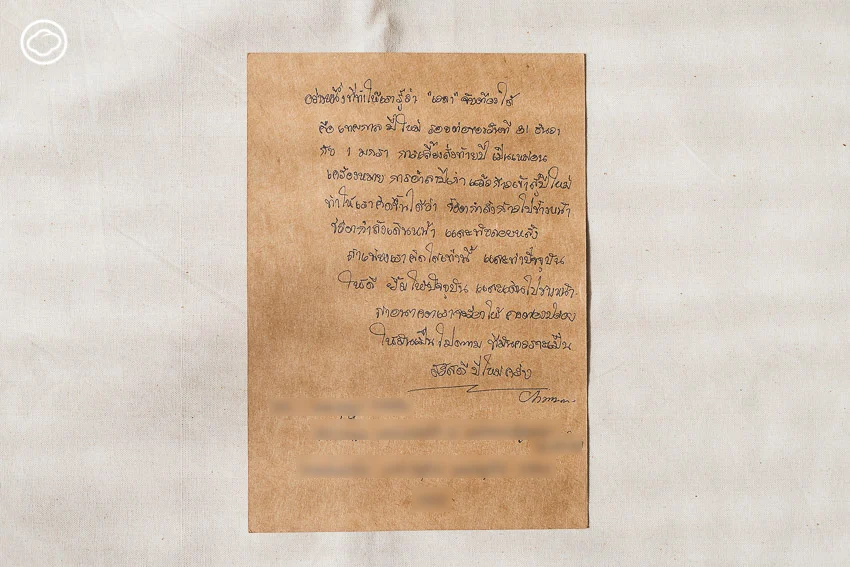 อย่างหนึ่งที่ทำให้เรารู้ว่า "เวลา" จับต้องได้
คือ เทศกาล ปีใหม่ รอยต่อของวันที่ 31 ธันวา
กับ 1 มกรา การเลี้ยงส่งท้ายปี เป็นเหมือน
เครื่องหมาย การอำลาปีเก่า แล้วก้าวเข้าสู่ปีใหม่
ทำให้เราคิดขึ้นได้ว่า ชีวิตกำลังก้าวไปข้างหน้า
ชีวิตกำลังเดินหน้า และทิ้งรอยหลัง
ถ้าเพียงเราคิดได้เท่านี้ และทำปัจจุบัน
ให้ดี ยิ้มให้ปัจจุบัน และเดินไปข้างหน้า
ให้มันเป็นไปตาม ที่มันควรจะเป็น
สวัสดี ปีใหม่ครับ